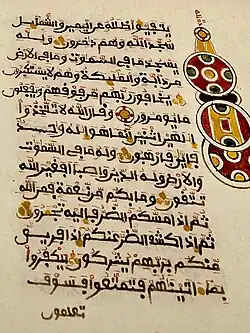 يتفيوا ظلله عن اليمين والشمايل
سجدا لله وهم دخرون ولله
يسجد ما في السموت وما في الارض
من دابة والمليكة وهم لا يستكبرون
يخافون ربهم من فوقهم ويفعلون
ما يومرون وقال الله لا تتخذوا
الهين اثنين انما هو اله وحد
فايي فارهبون وله ما في السموت
والارض وله الدين واصبا افغير الله
تتقون وما بكم من نعمة فمن الله
ثم اذا مسكم الضر فاليه تجرون
ثم اذا كشف الضر عنكم اذا فريق
منكم بربهم يشركون ليكفروا
بما اتينهم فتمتعوا فسوف
تعلمون